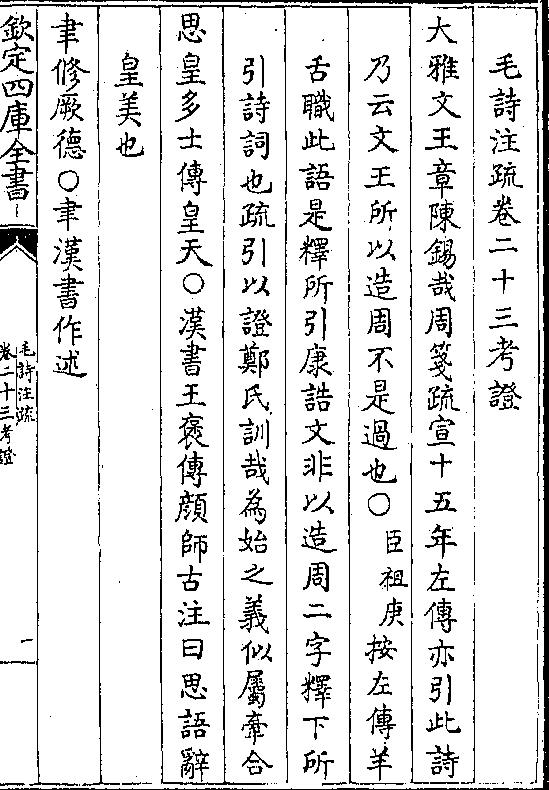 毛詩注疏卷二十三考證
大雅文王章陳錫哉周箋疏宣十五年左傳亦引此詩
乃云文王所以造周不是過也○臣祖庚按左傳羊
舌職此語是釋所引康誥文非以造周二字釋下所
引詩詞也疏引以證鄭氏訓哉為始之義似屬牽合
思皇多士傳皇天○漢書王褒傳顔師古注曰思語辭
皇美也
聿修厥德○聿漢書作述
欽定四庫全書
毛詩注疏
卷二十三考證
一